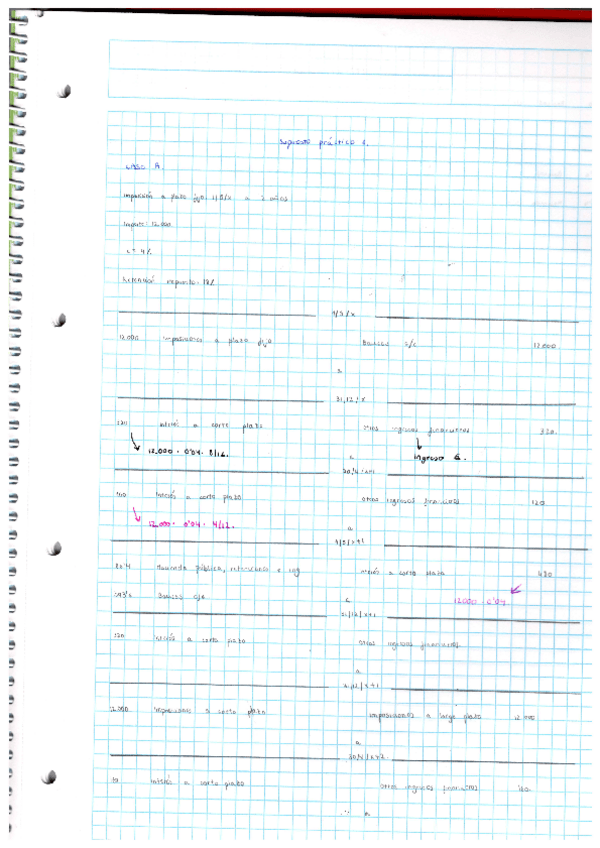 Supuesto práctico 1.
CASO A.
Imposición a plazo fijo 1/5/x a 2 años
Importe: 12.000
i = 4%
Retención impuesto: 18%
1/5/x
12.000 Imposiciones a plazo fijo Bancos c/c 12.000
a
31/12/x
320 Interés a corto plazo Otros ingresos financieros 320.
12.000 · 0'04 · 8/12. Ingreso G.
a
30/4/x+1
Interés a corto plazo Otros ingresos financieros
12.000 · 0'04 · 4/12.
a
1/5/x+1
86'4 Hacienda pública, retenciones e ing Interés a corto plazo 480
393'6 Bancos c/c a 12.000 · 0'04
31/12/x+1
320 Interés a corto plazo Otros ingresos financieros
a
31/12/x+1
12.000 Imposiciones a corto plazo Imposiciones a largo plazo 12.000
a
30/4/x+2
Interés a corto plazo Otros ingresos financieros
a